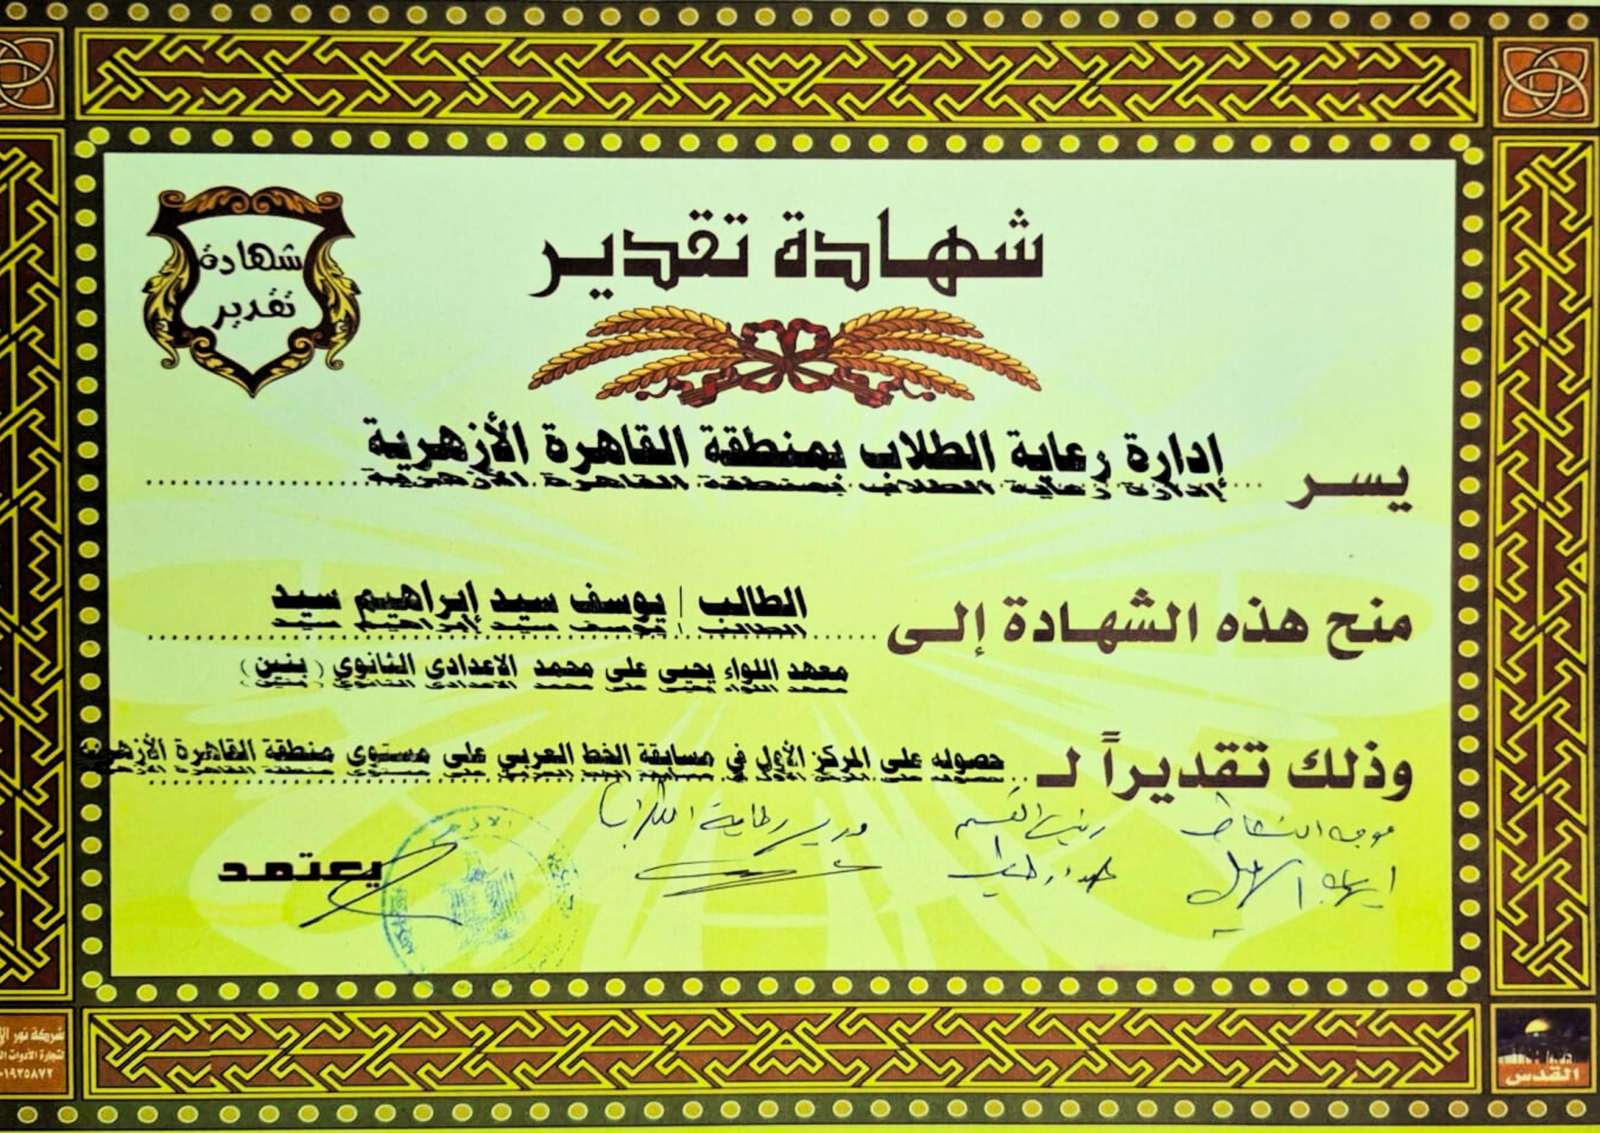 شهادة تقدير
شهادة
تقدير
يسر إدارة رعاية الطلاب بمنطقة القاهرة الأزهرية
منح هذه الشهادة إلى الطالب / يوسف سيد إبراهيم سيد
معهد اللواء يحيى على محمد الاعدادى الثانوى (بنين)
وذلك تقديراً لـ حصوله على المركز الأول في مسابقة الخط العربي على مستوى منطقة القاهرة الأزهرية
موجه النشاط رئيس القسم مدير رعاية الطلاب
يعتمد
الأزهر
شركة نور
لتجارة الأدوات
القدس